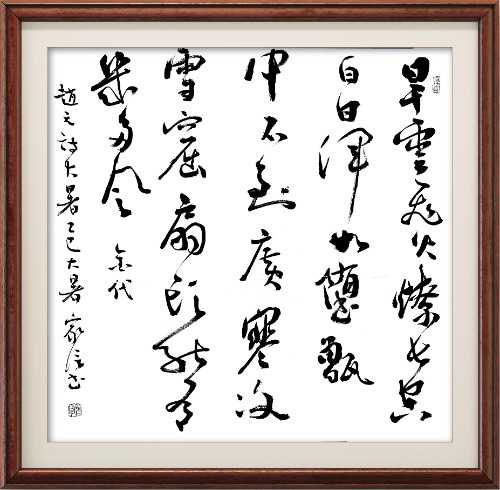 旱雲飛火燎長空
白日渾如墮甑
中不到廣寒冰
雪窟扇頭能有
幾多風 金代
趙元詩大暑乙巳大暑家信書